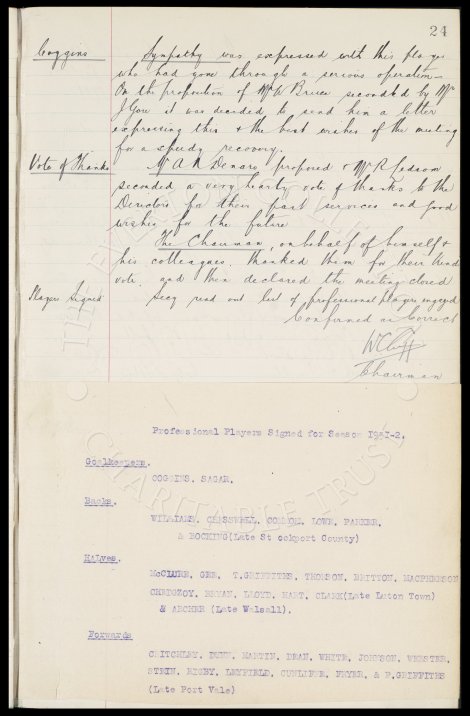 24
Coggins Sympathy was expressed with this player
who had gone through a serious operation—
On the proposition of Mr W Bruce seconded by Mr
J Gore it was decided to send him a letter
expressing this & the best wishes of the meeting
for a speedy recovery.
Vote of Thanks Mr A R Denaro proposed & Mr R
seconded a very hearty vote of thanks to the
Directors for their past services and good
wishes for the future
The Chairman, on behalf of himself &
his colleagues, thanked them for their kind
vote, and then declared the meeting closed
Players Signed Secy read out list of professional players engaged
Confirmed as Correct
W C Cuff
Chairman
Professional Players Signed for Season 1931-2.
Goalkeepers.
COGGINS, SAGAR,
Backs.
WILLIAMS, CRESSWELL, COMMON, LOWE, PARKER,
& BOCKING(Late St ockport County)
HALves.
McCLURE, GEE, T.GRIFFITHS, THOMSON, BRITTON, MACPHERSON
BRYAN, LLOYD, HART, CLARK(Late Luton Town)
& ARCHER (Late Walsall).
Forwards
CRITCHLEY, DUNN, MARTIN, DEAN, WHITE, JOHNSON, WEBSTER,
STEIN, RIGBY, LEYFIELD, CUNLIFFE, FRYER, & P.GRIFFITHS
(Late Port Vale)
THE EVERTON
CHARITABLE TRUST